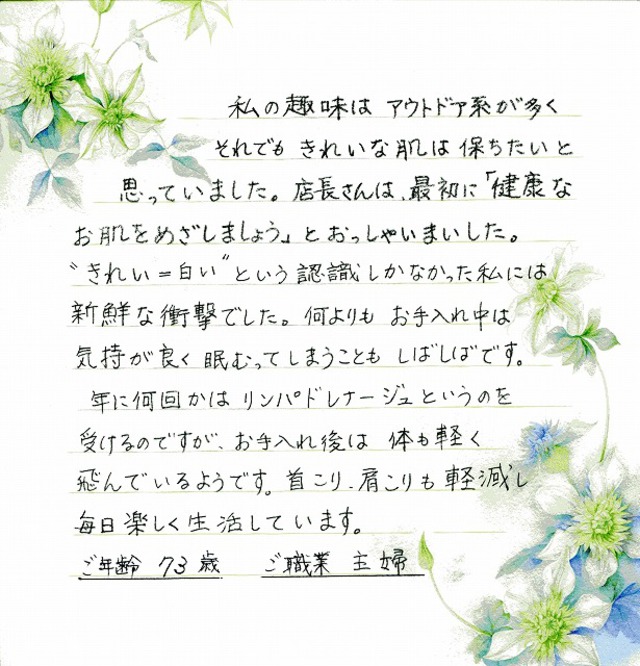 私の趣味は アウトドア系が多く
それでも きれいな肌は 保ちたいと
思っていました。店長さんは、最初に「健康な
お肌をめざしましょう」とおっしゃいまいした。
"きれい=白い"という認識しかなかった私には
新鮮な衝撃でした。何よりも お手入れ中は
気持が良く眠むってしまうことも しばしばです。
年に何回かは リンパドレナージュというのを
受けるのですが、お手入れ後は 体も軽く
飛んでいるようです。首こり、肩こりも軽減し
毎日楽しく生活しています。
ご年齢 73歳 ご職業 主婦